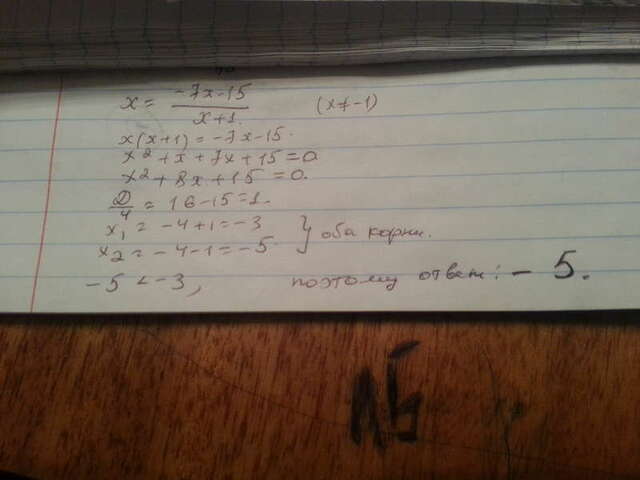 x = \frac{-7x-15}{x+1} (x≠-1)
x(x+1) = -7x-15.
x² + x + 7x + 15 = 0
x² + 8x + 15 = 0.
\frac{D}{4} = 16 - 15 = 1.
x₁ = -4+1 = -3
x₂ = -4-1 = -5 } оба корни.
-5 < -3, поэтому ответ: -5.